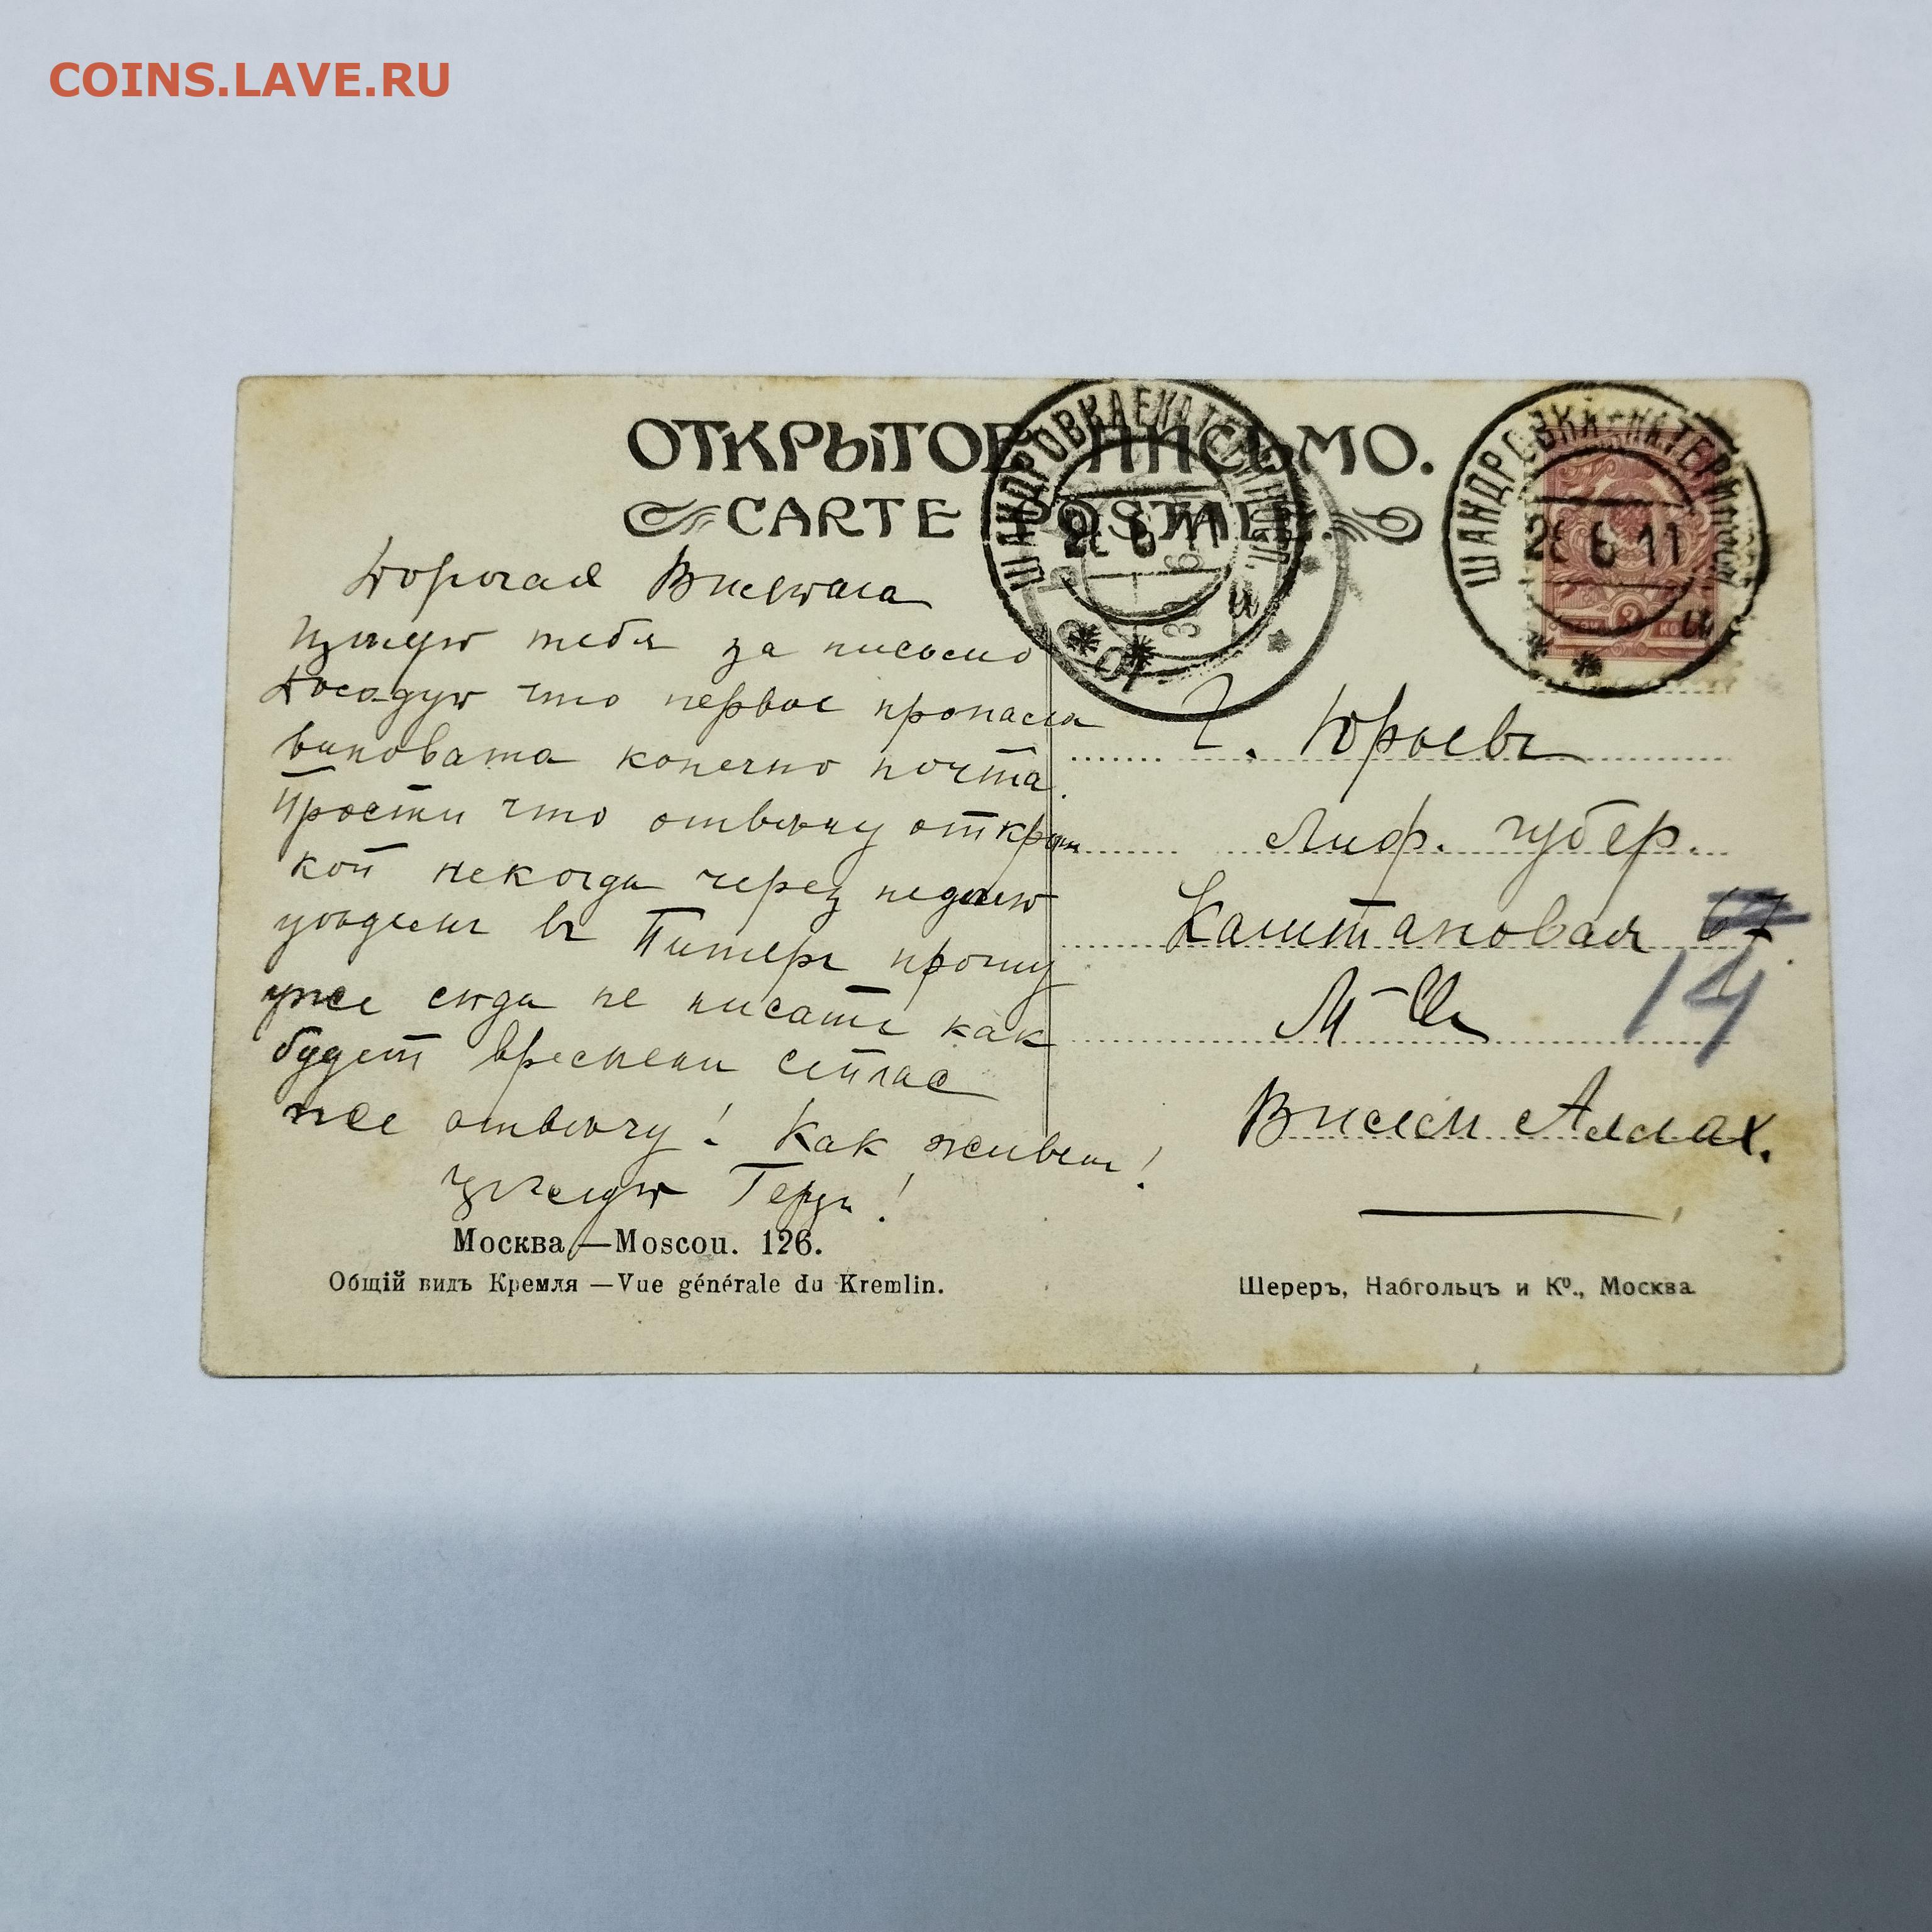 COINS.LAVE.RU
ОТКРЫТОЕ ПИСЬМО.
CARTE POSTALE.
ШАНДРОВКА ЕКАТЕРИНОСЛ.
26 6 11
и
ШАНДРОВКА ЕКАТЕРИНОСЛ.
26 6 11
и
Дорогая
Цѣлую тебя за письмо
Досадую что первое пропало
виновата конечно почта.
Прости что отвѣчу открыт
кой некогда через недѣлю
уѣдемъ въ Питеръ прошу
уже сюда не писать как
будет времени сейчас
же отвѣчу! Как живешь!
Цѣлую
Г. Юрьевъ
Лиф. губер.
Каштановая 67
14
Москва,—Moscou. 126.
Общій видъ Кремля —Vue générale du Kremlin.
Шереръ, Набгольцъ и Кº., Москва